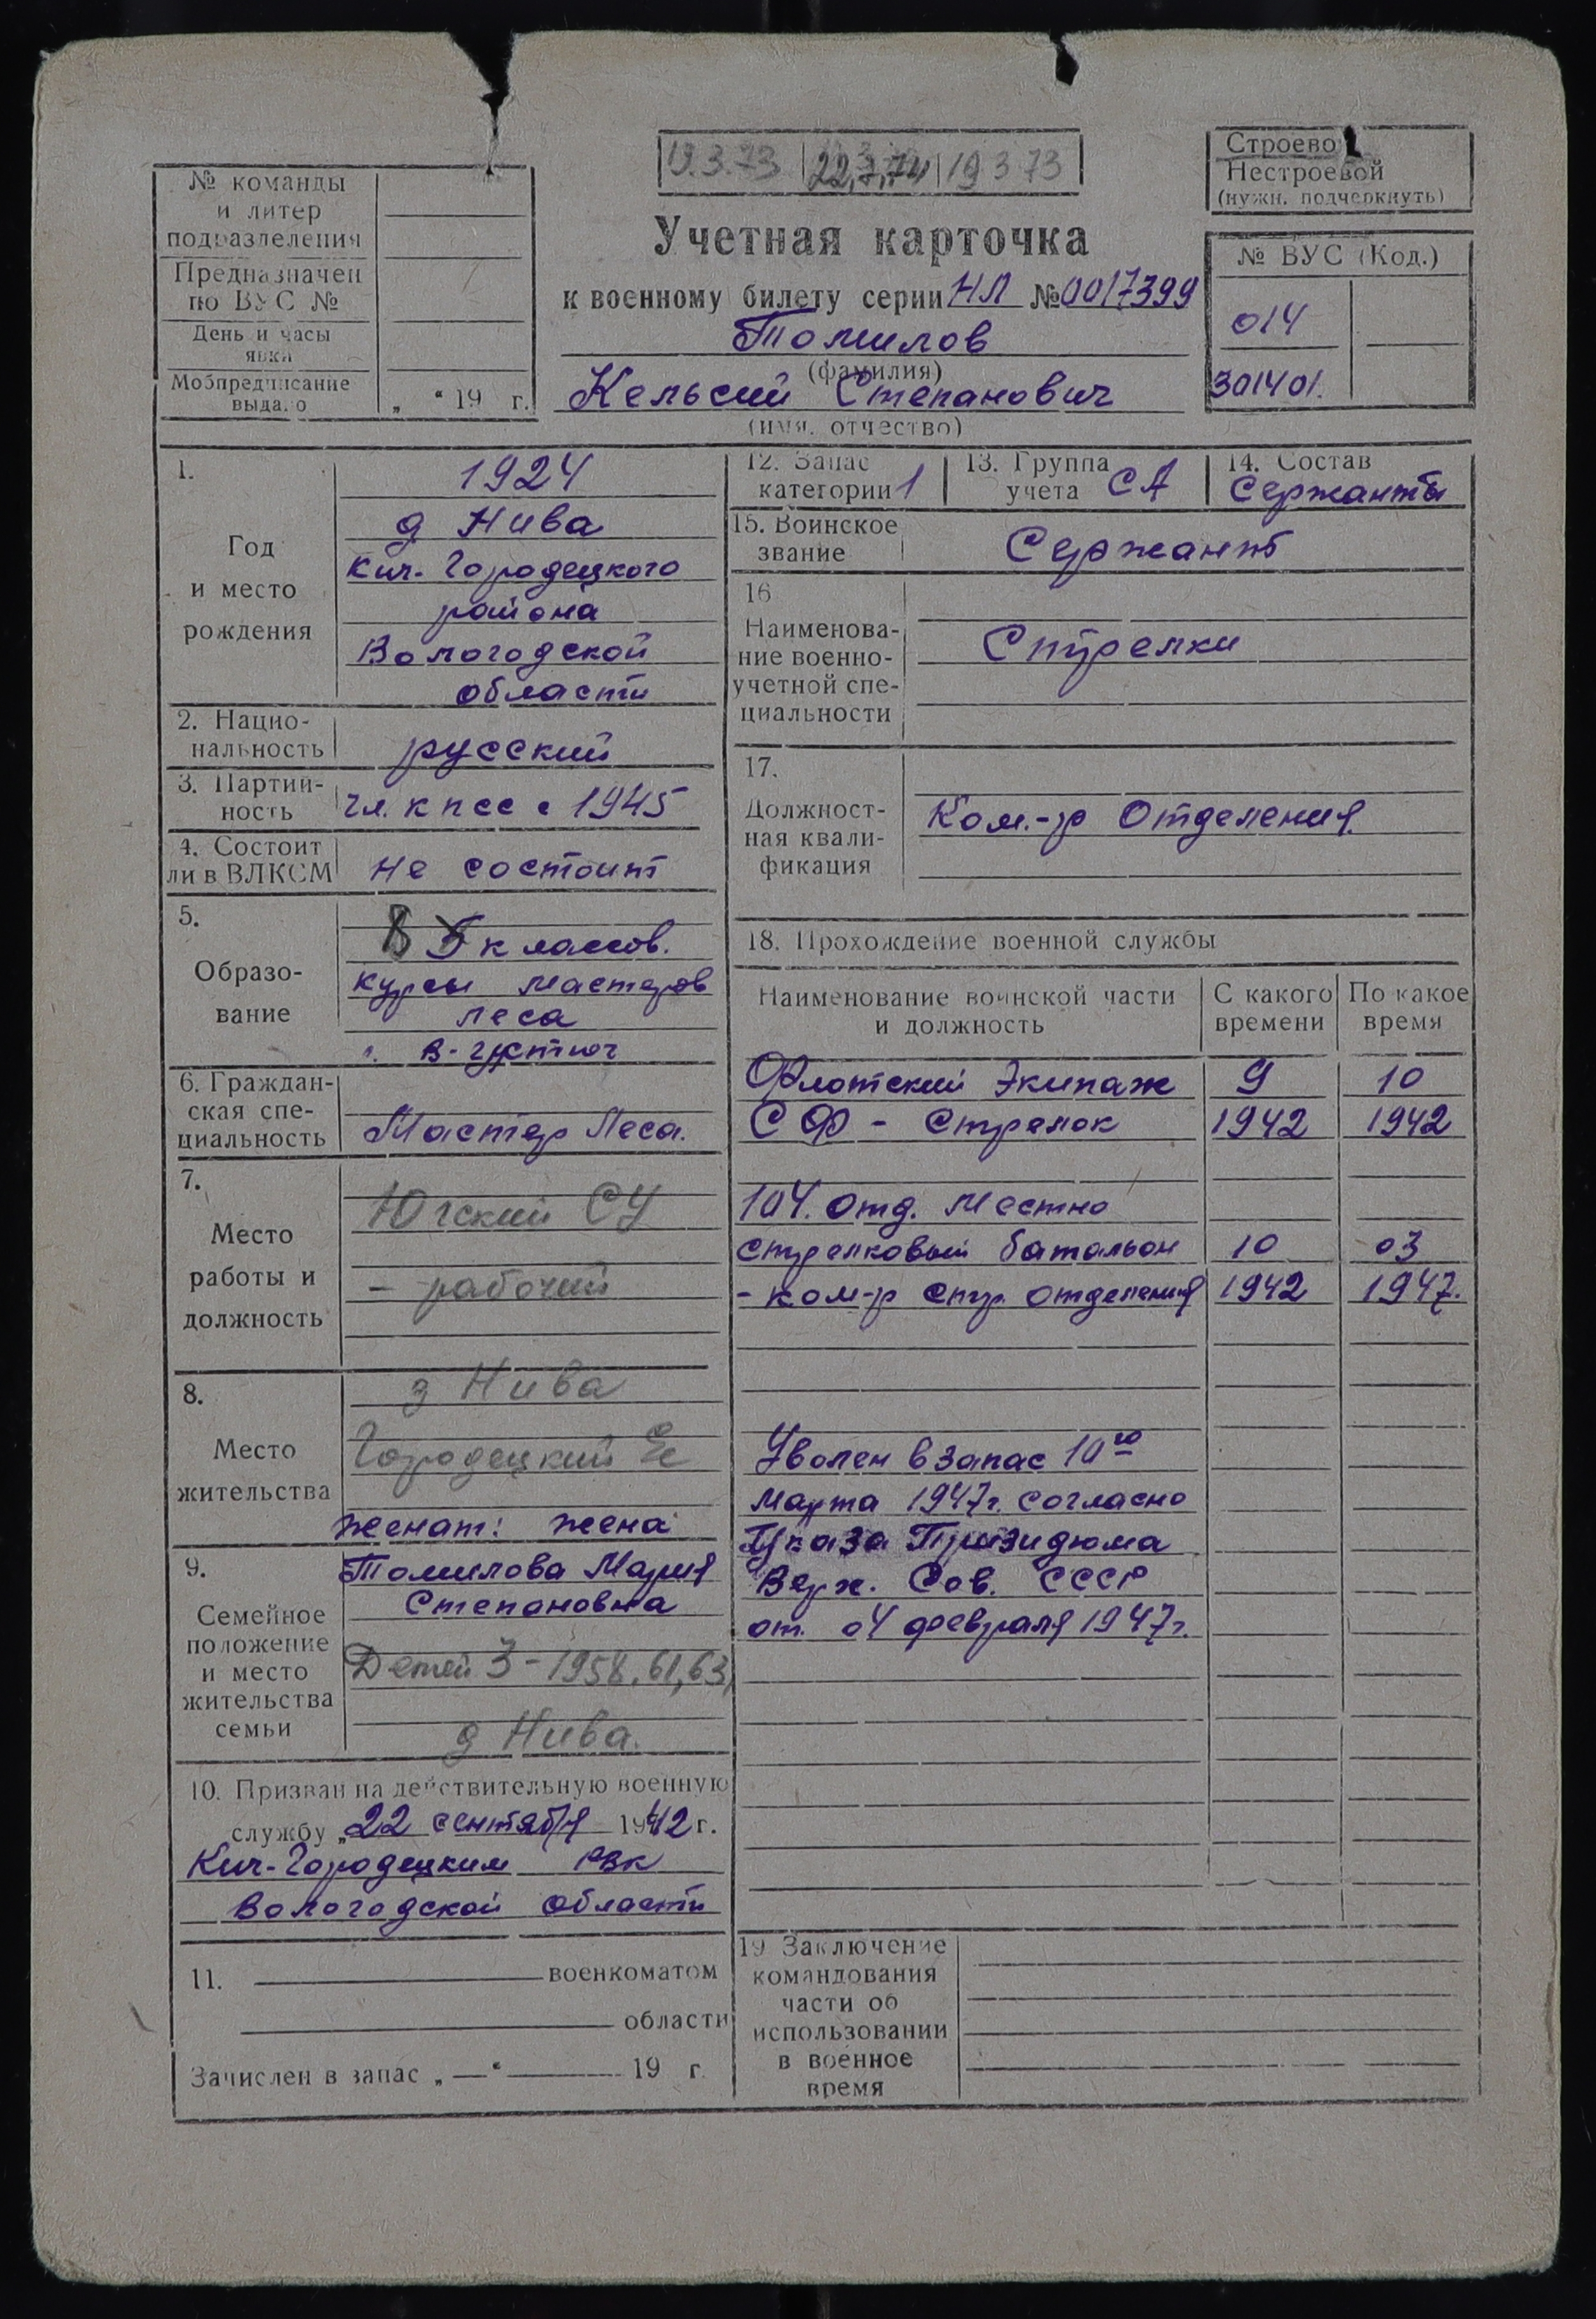 19.3.73 22.7.74 19 3 73
Строево
Нестроевой
(нужн. подчеркнуть)
№ команды
и литер
подразделения
Предназначен
по ВУС №
День и часы
явки
Мобпредписание
выдано „ “ 19 г.
Учетная карточка
к военному билету серии НЛ № 0017399
Томилов
(фамилия)
Кельсий Степанович
(имя, отчество)
№ ВУС (Код.)
014
301401.
1.
Год
и место
рождения
1924
д Нива
Кич-Городецкого
района
Вологодской
области
2. Нацио-
нальность
русский
3. Партий-
ность
чл. КПСС с 1945
4. Состоит
ли в ВЛКСМ
не состоит
5.
Образо-
вание
8 5 классов.
курсы мастеров
леса
г. В-Устюг
6. Граждан-
ская спе-
циальность
Мастер Леса.
7.
Место
работы и
должность
Югский СУ
- рабочий
8.
Место
жительства
Нива
Городецкий
женат: жена
9.
Семейное
положение
и место
жительства
семьи
Томилова Мария
Степановна
Детей 3 - 1958, 61, 63,
д Нива.
10. Призван на действительную военную
службу „22 сентября 1942 г.
Кич-Городецким РВК
Вологодской области
11. военкоматом
области
Зачислен в запас „ — “ 19 г.
12. Запас
категории 1
13. Группа
учета СА
14. Состав
Сержанты
15. Воинское
звание
Сержант
16
Наименова-
ние военно-
учетной спе-
циальности
Стрелки
17.
Должност-
ная квали-
фикация
Ком.-р Отделения
18. Прохождение военной службы
Наименование воинской части
и должность
С какого
времени
По какое
время
Флотский Экипаж 9 10
СФ - Стрелок 1942 1942
104. Отд. Местно
стрелковый батальон 10 03
- ком-р стр. отделения 1942 1947.
Уволен в запас 10го
Марта 1947г. согласно
Указа Призидюма
Верх. Сов. СССР
от. 04 февраля 1947г.
19 Заключение
командования
части об
использовании
в военное
время